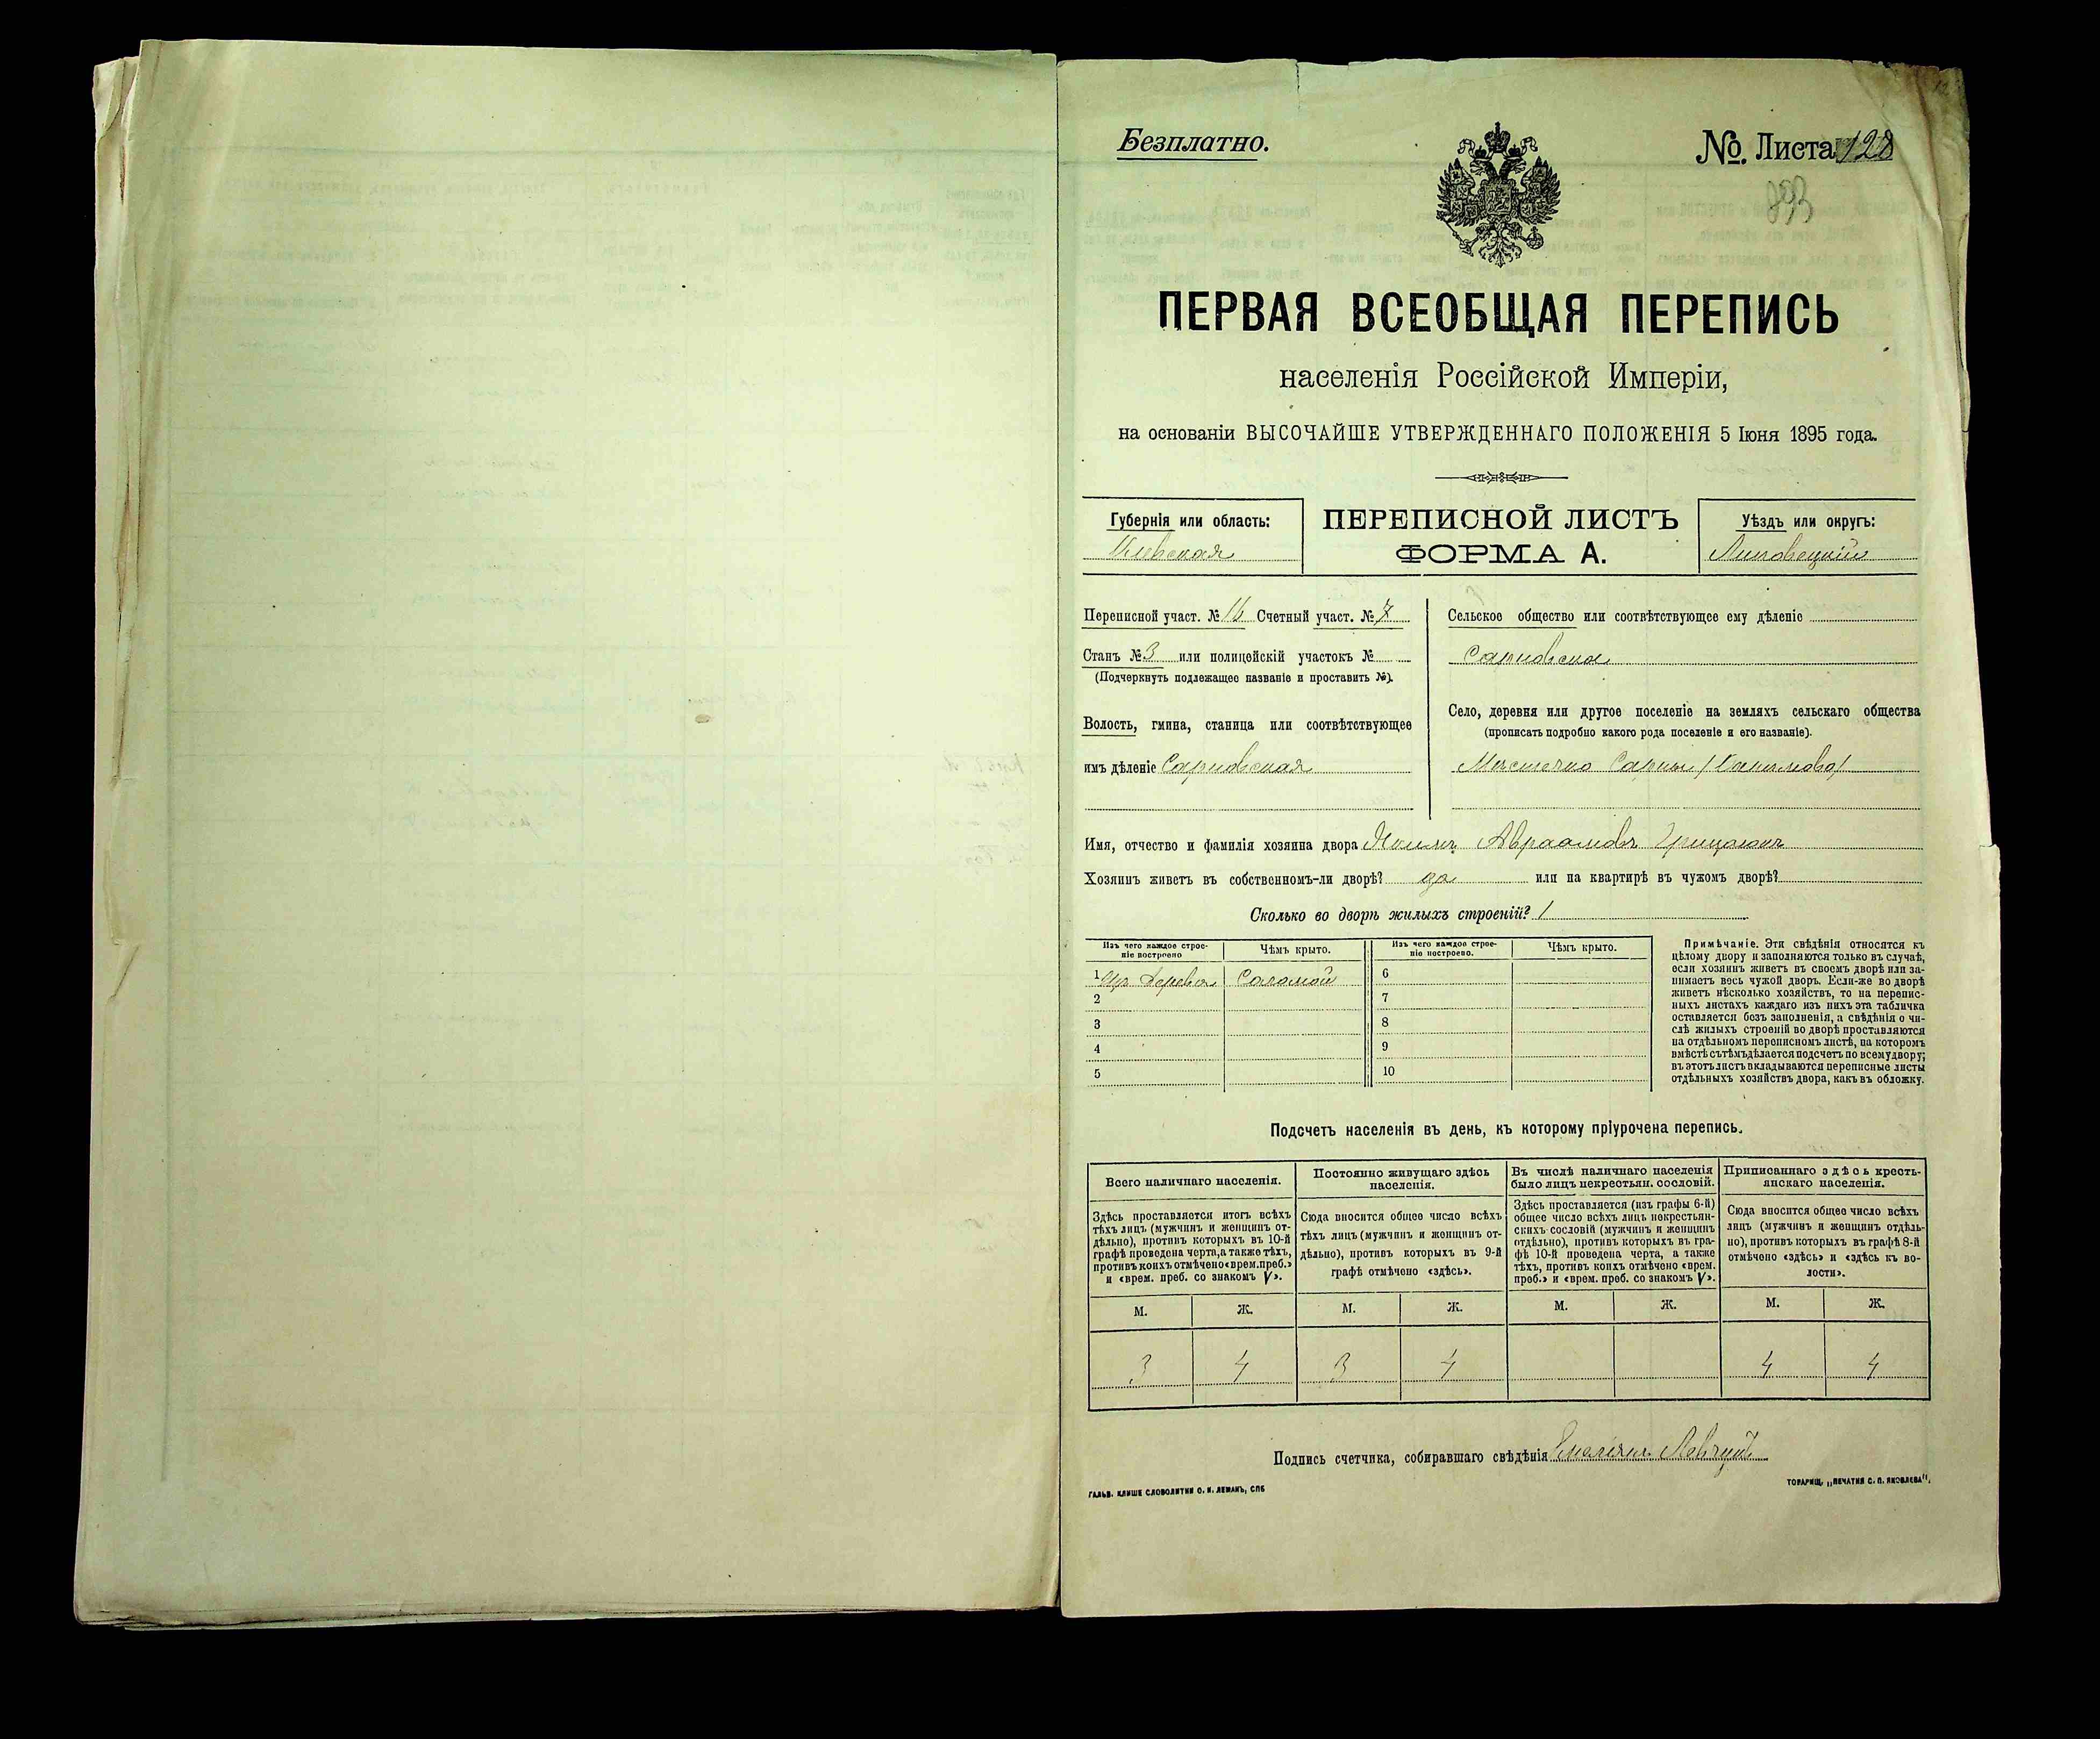 Безплатно.
№. Листа 128
893
ПЕРВАЯ ВСЕОБЩАЯ ПЕРЕПИСЬ
населенія Россійской Имперіи,
на основаніи ВЫСОЧАЙШЕ УТВЕРЖДЕННАГО ПОЛОЖЕНІЯ 5 Іюня 1895 года.
Губернія или область:
Кіевская
ПЕРЕПИСНОЙ ЛИСТЪ
ФОРМА А.
Уѣздъ или округъ:
Липовецкій
Переписной участ. № 16 Счетный участ. № 7
Станъ № 3 или полицейскій участокъ №
(Подчеркнуть подлежащее названіе и проставить №).
Волость, гмина, станица или соотвѣтствующее
имъ дѣленіе Сарновская
Сельское общество или соотвѣтствующее ему дѣленіе
Сарновское
Село, деревня или другое поселеніе на земляхъ сельскаго общества
(прописать подробно какого рода поселеніе и его названіе).
Мѣстечко Сарны
Имя, отчество и фамилія хозяина двора Авраамовъ
Хозяинъ живетъ въ собственномъ-ли дворѣ? да или на квартирѣ въ чужомъ дворѣ?
Сколько во дворѣ жилыхъ строеній? 1
Изъ чего каждое строе-
ніе построено
Чѣмъ крыто.
Изъ чего каждое строе-
ніе построено.
Чѣмъ крыто.
1 Изъ дерева Соломой 6
2 7
3 8
4 9
5 10
Примѣчаніе. Эти свѣдѣнія относятся къ
цѣлому двору и заполняются только въ случаѣ,
если хозяинъ живетъ въ своемъ дворѣ или за-
нимаетъ весь чужой дворъ. Если-же во дворѣ
живетъ нѣсколько хозяйствъ, то на перепис-
ныхъ листахъ каждаго изъ нихъ эта табличка
оставляется безъ заполненія, а свѣдѣнія о чи-
слѣ жилыхъ строеній во дворѣ проставляются
на отдѣльномъ переписномъ листѣ, на которомъ
вмѣстѣ съ тѣмъ дѣлается подсчетъ по всему двору;
въ этотъ листъ вкладываются переписные листы
отдѣльныхъ хозяйствъ двора, какъ въ обложку.
Подсчетъ населенія въ день, къ которому пріурочена перепись.
Всего наличнаго населенія.
Постоянно живущаго здѣсь
населенія.
Въ числѣ наличнаго населенія
было лицъ некрестьян. сословій.
Приписаннаго здѣсь кресть-
янскаго населенія.
Здѣсь проставляется итогъ всѣхъ
тѣхъ лицъ (мужчинъ и женщинъ от-
дѣльно), противъ которыхъ въ 10-й
графѣ проведена черта, а также тѣхъ,
противъ коихъ отмѣчено «врем. преб.»
и «врем. преб. со знакомъ V».
Сюда вносится общее число всѣхъ
тѣхъ лицъ (мужчинъ и женщинъ от-
дѣльно), противъ которыхъ въ 9-й
графѣ отмѣчено «здѣсь».
Здѣсь проставляется (изъ графы 6-й)
общее число всѣхъ лицъ некрестьян-
скихъ сословій (мужчинъ и женщинъ
отдѣльно), противъ которыхъ въ гра-
фѣ 10-й проведена черта, а также
тѣхъ, противъ коихъ отмѣчено «врем.
преб.» и «врем. преб. со знакомъ V».
Сюда вносится общее число всѣхъ
лицъ (мужчинъ и женщинъ отдѣль-
но), противъ которыхъ въ графѣ 8-й
отмѣчено «здѣсь» и «здѣсь къ во-
лости».
М. Ж. М. Ж. М. Ж. М. Ж.
3 4 3 4 4 4
Подпись счетчика, собиравшаго свѣдѣнія
ГАЛЬВ. КЛИШЕ СЛОВОЛИТНИ О. И. ЛЕМАНЪ, СПБ
ТОВАРИЩ. „ПЕЧАТНЯ С. П. ЯКОВЛЕВА".